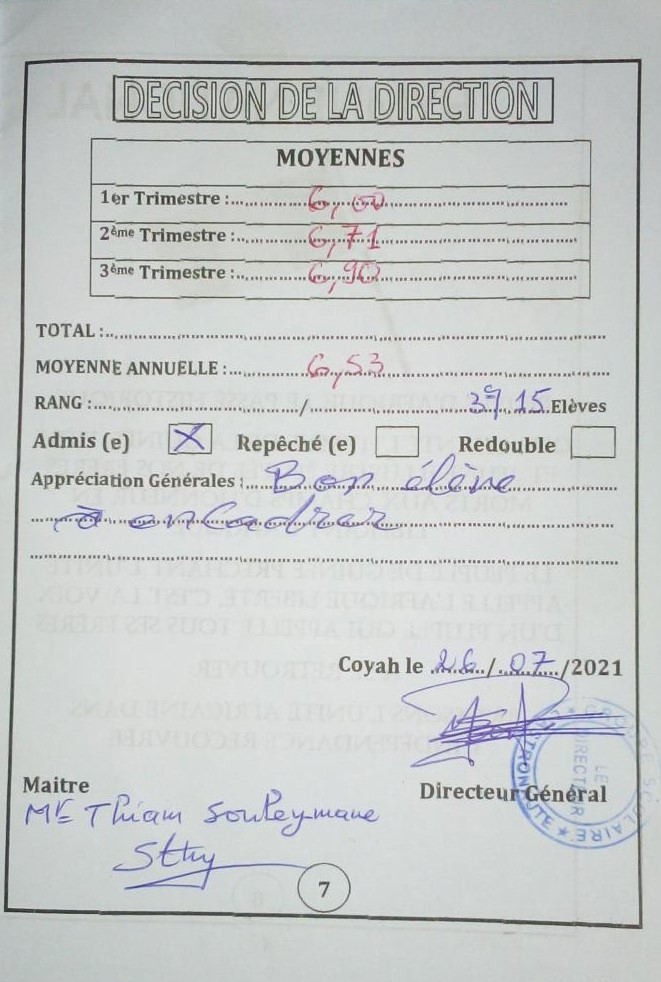 DECISION DE LA DIRECTION
MOYENNES
1er Trimestre :.......... 6,00
2ème Trimestre :.......... 6,71
3ème Trimestre :.......... 6,90
TOTAL :..........
MOYENNE ANNUELLE :.......... 6,53
RANG :........../.......... 3e/15 Elèves
Admis (e) X Repêché (e) Redouble
Appréciation Générales : Bon elève
à encadrer
Coyah le 26/07/2021
GROUPE SCOLAIRE
LE DIRECTEUR
Maitre Directeur Général
Mr Thiam Souleymane
7